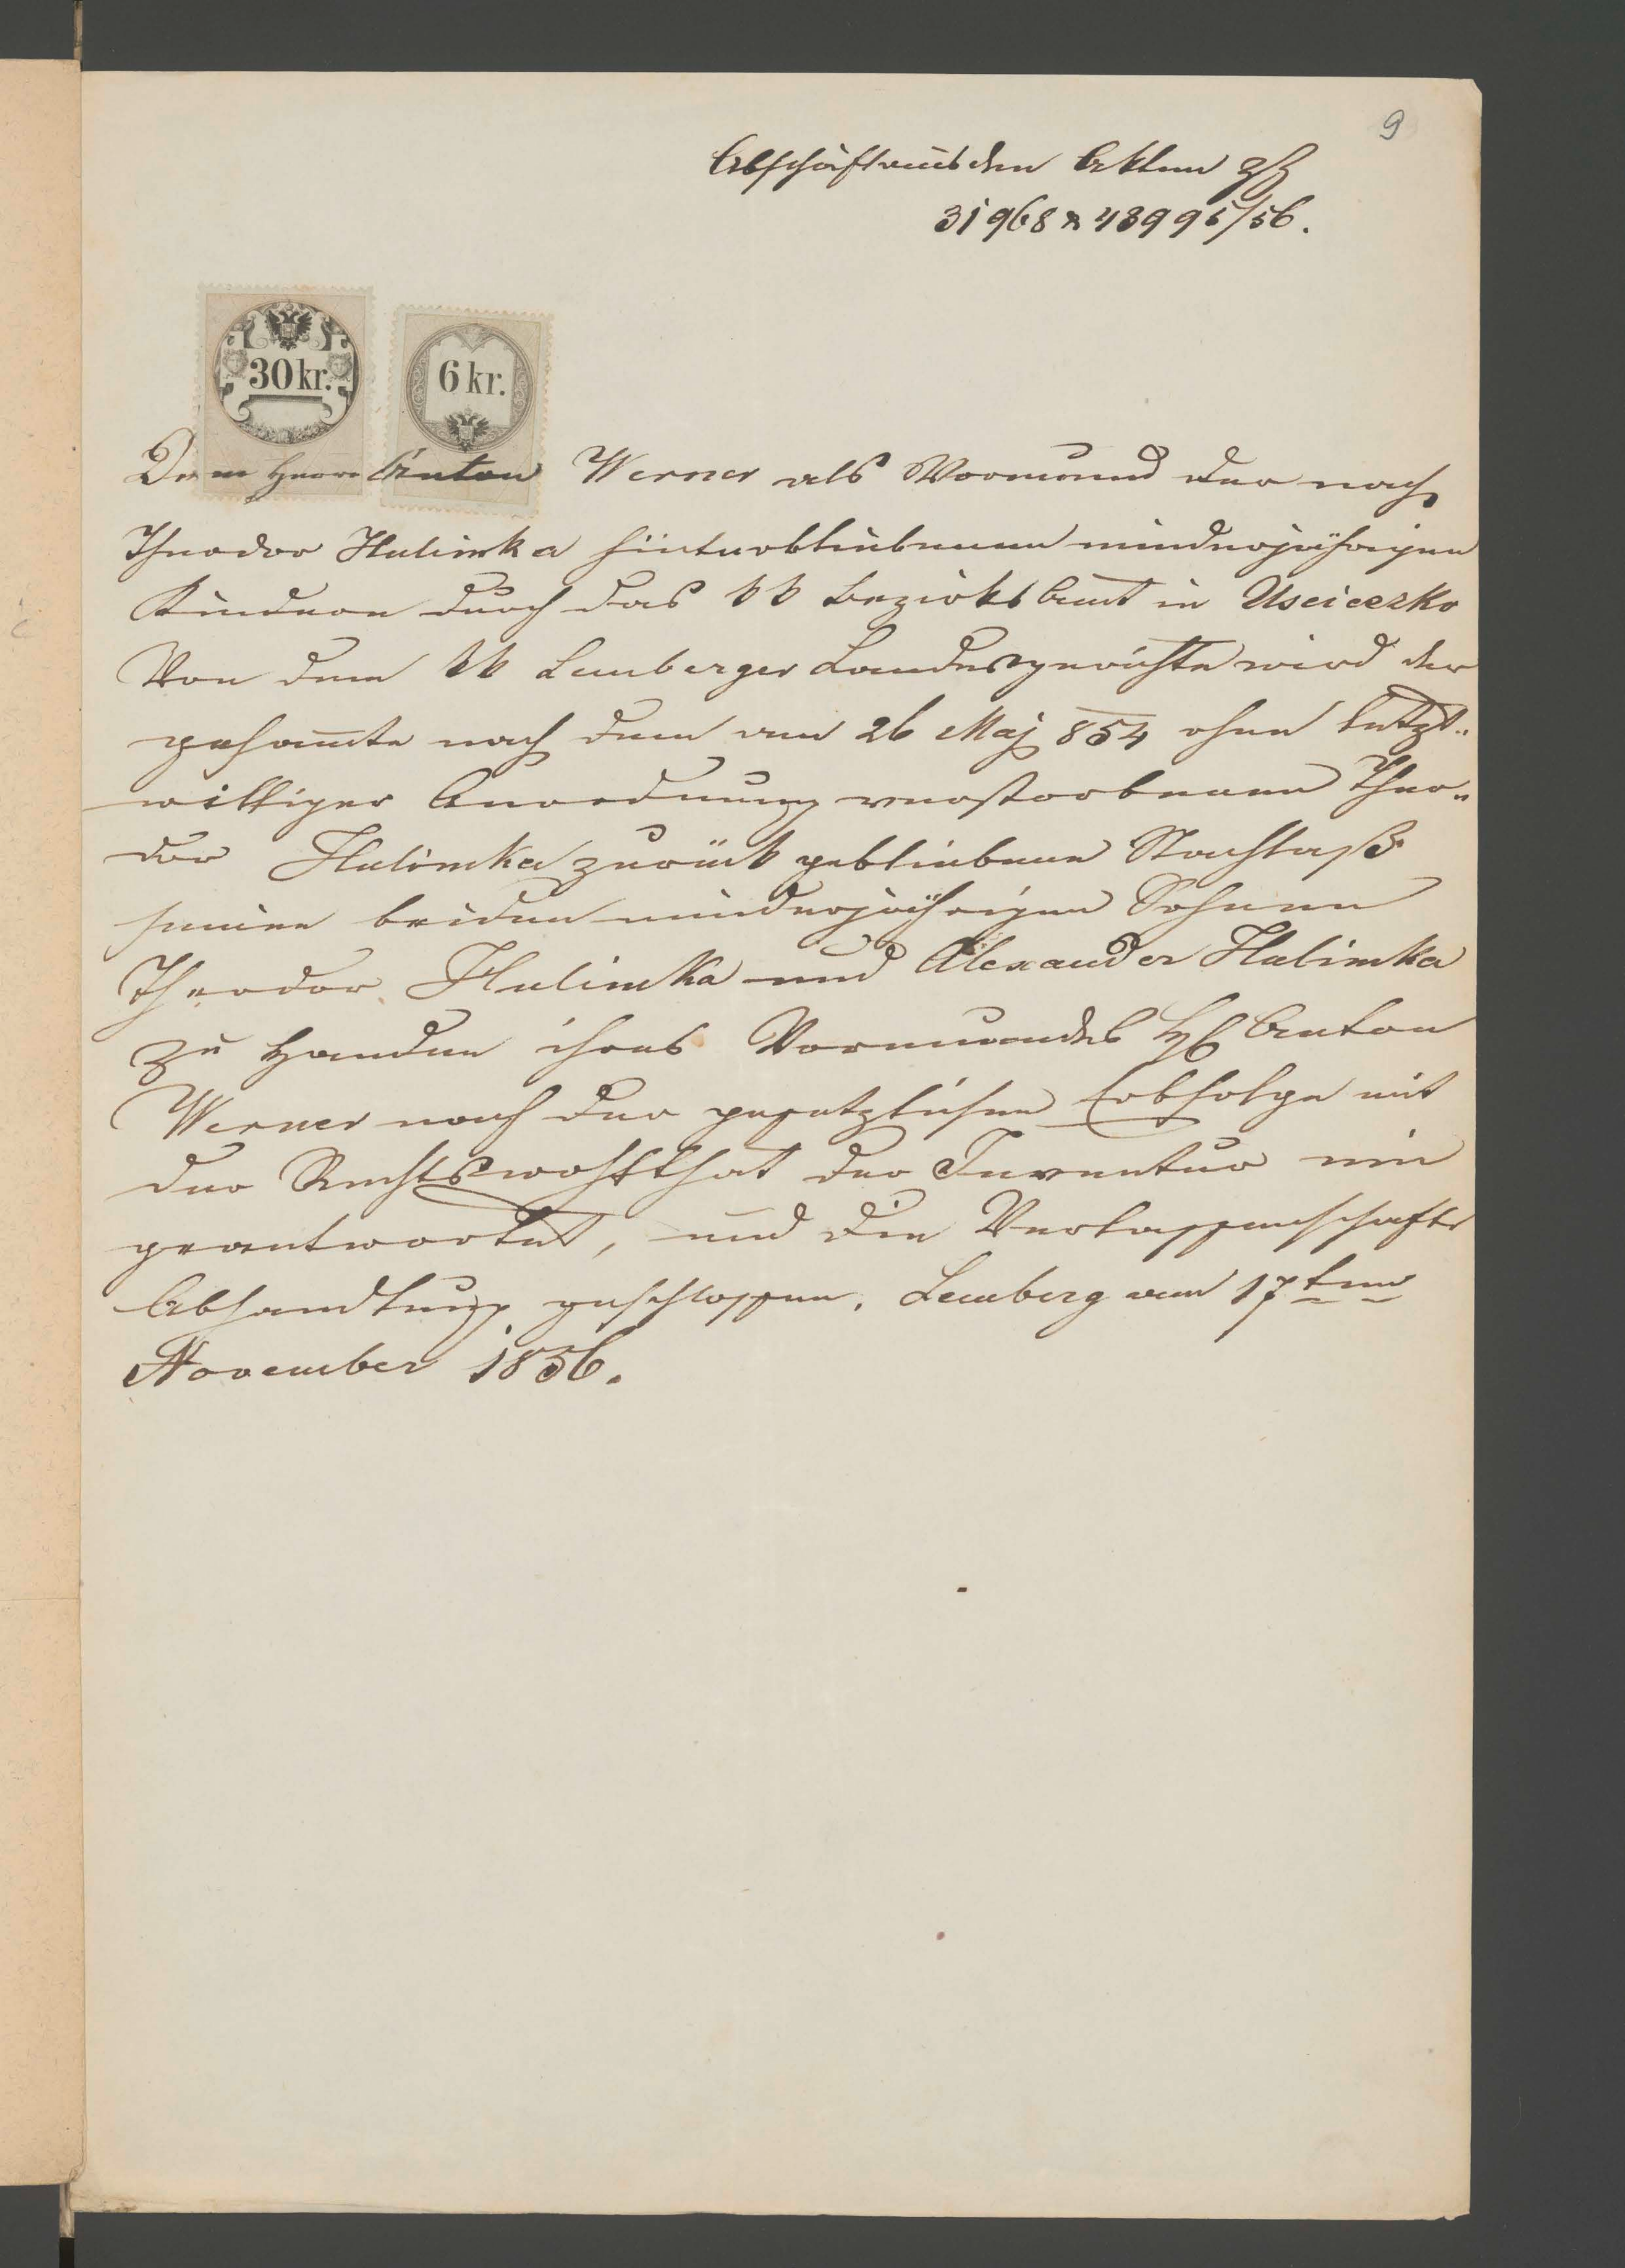 9
Abschrift aus den Akten Zhl
31968 & 48995/56.
30 kr.
6 kr.
Dem Herrn Anton Werner als Vormund der nach
Theodor Hulimka hinterbliebenen minderjährigen
Kindern durch das kk Bezirksamt in Usciezko
Von dem kk Lemberger Landesgerichte wird der
gesam̄te nach dem am 26 Maj 854 ohne letzt„
williger Anordnung verstorbenen Theo„
dor Hulimka zurück gebliebene Nachlaß
seinen beiden minderjährigen Sohnen
Theodor Hulimka und Alexander Hulimka
zu Handen ihres Vormundes H Anton
Werner nach der gesetzlichen Erbfolge mit
der Rechtswohlthat der Inventur ein
geantwortet, und die Verlassenschafts
Abhandlung geschlossen. Lemberg am 17ten
November 1856.